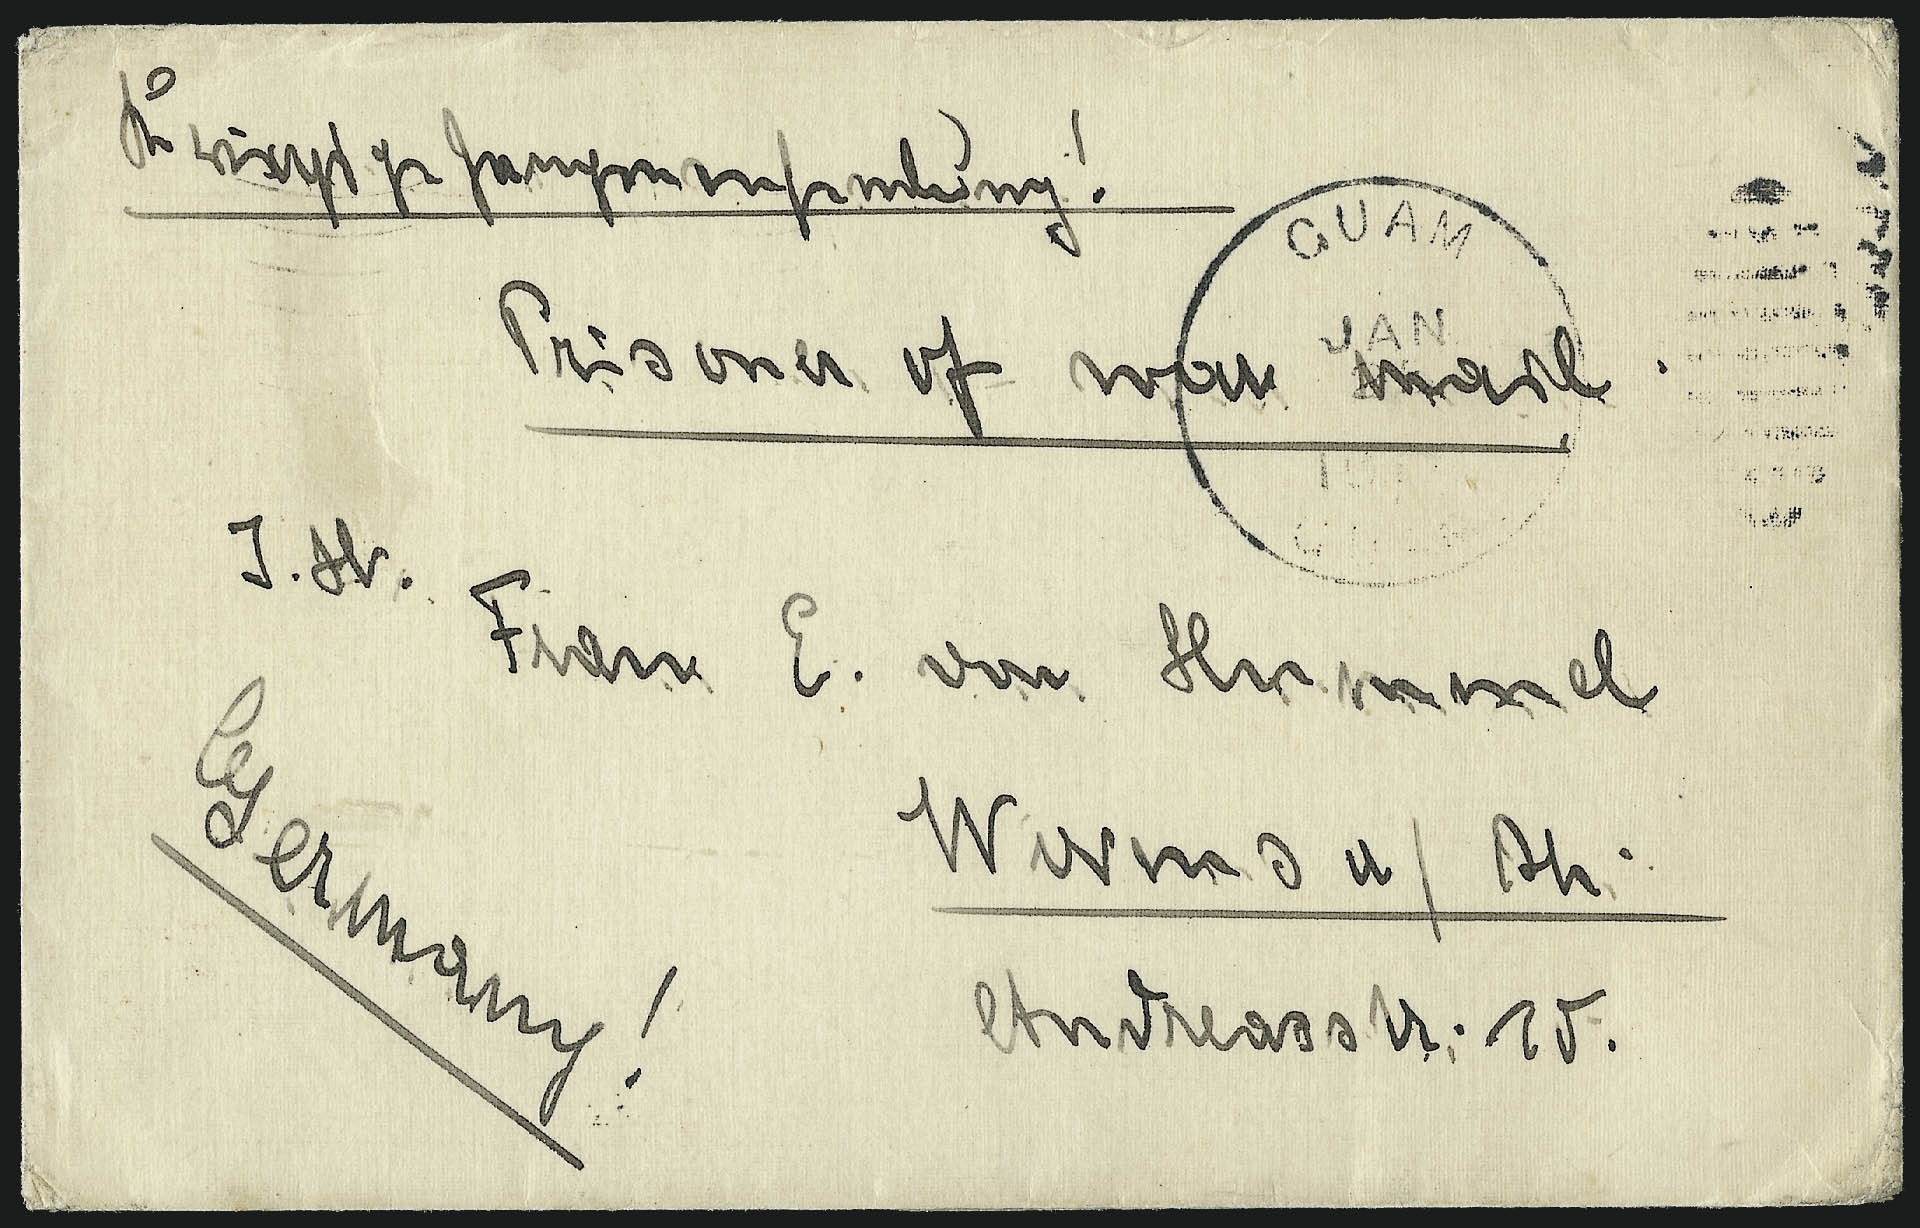 Kriegsgefangenensendung!
GUAM
JAN
Prisoner of war mail.
I. H.
Frau E. von Hummel
Worms a/ Rh.
Germany!
Andreasstr. 15.